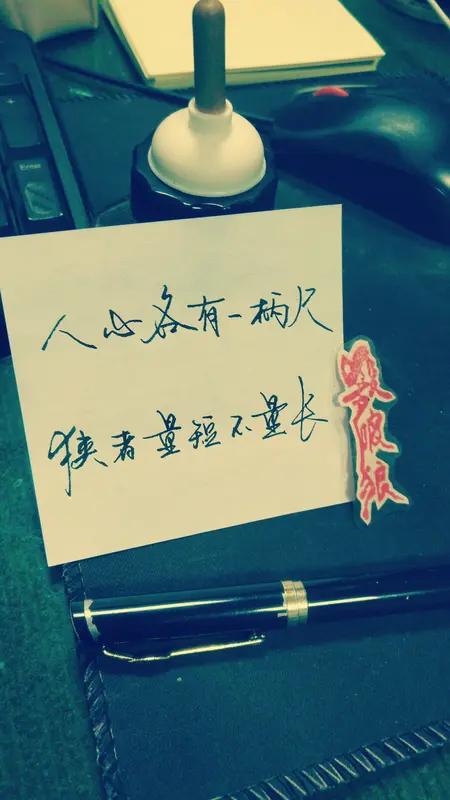 Enter
人心各有一柄尺
狭者量短不量长
眼狼